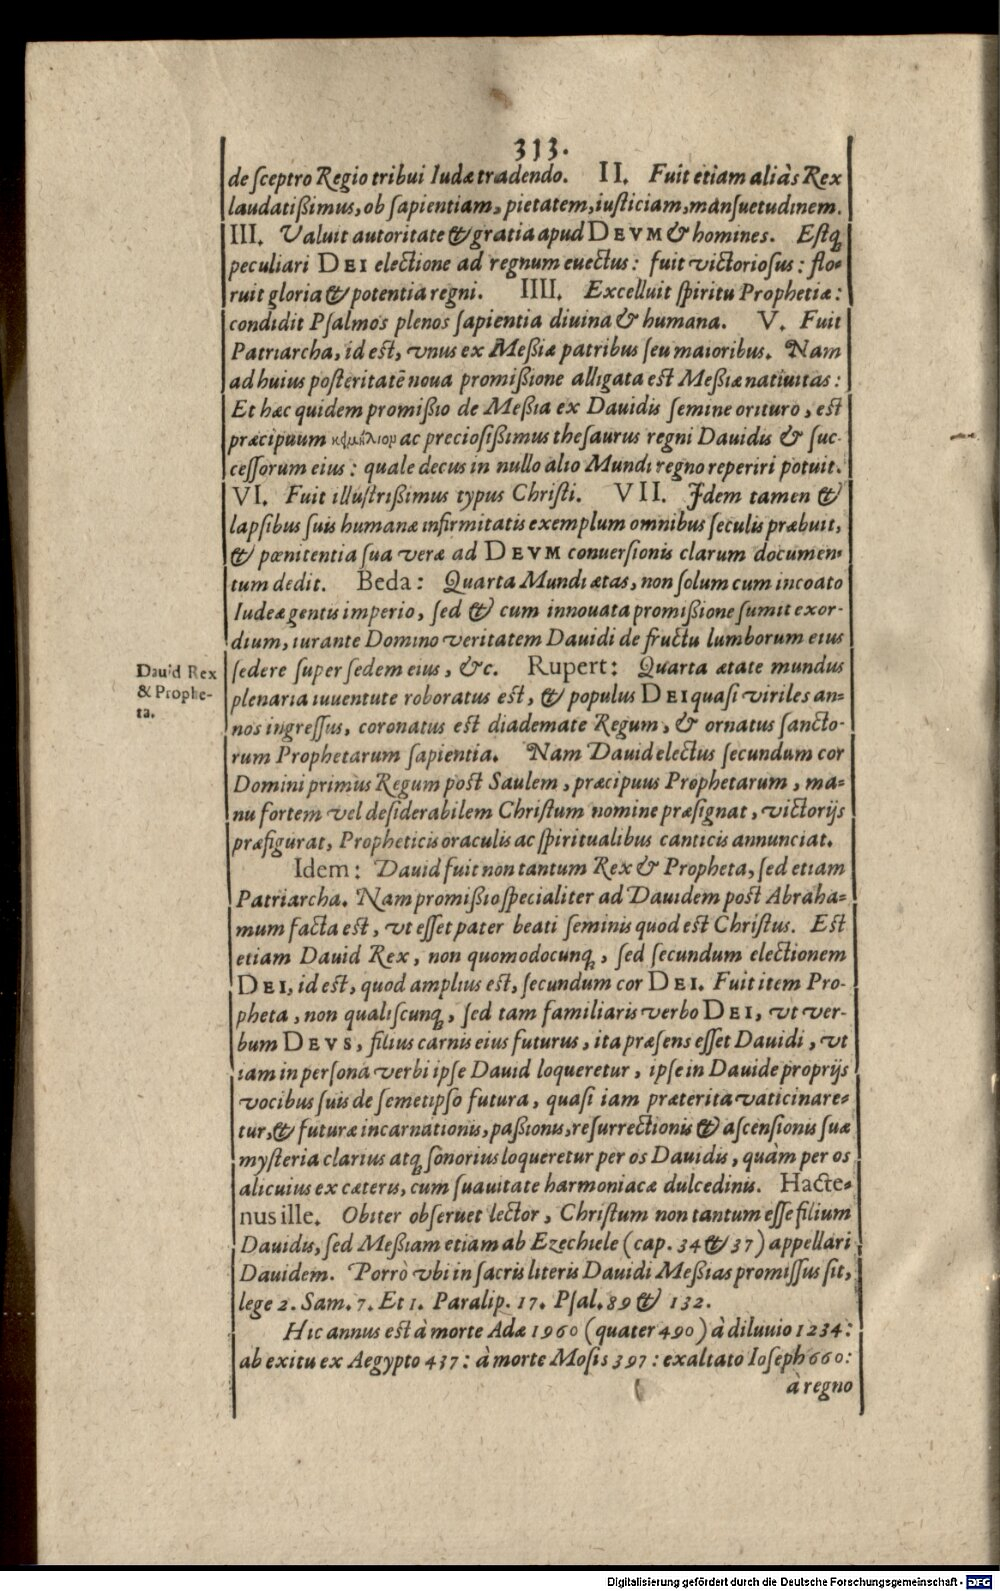 313.
de ſceptro Regio tribui Iudæ tradendo. II. Fuit etiam aliàs Rex
laudatißimus, ob ſapientiam, pietatem, iuſticiam, manſuetudinem.
III. Valuit autoritate & gratia apud DEVM & homines. Eſtq́;
peculiari DEI electione ad regnum euectus: fuit victorioſus: flo-
ruit gloria & potentia regni. IIII. Excelluit ſpiritu Prophetiæ:
condidit Pſalmos plenos ſapientia diuina & humana. V. Fuit
Patriarcha, id eſt, vnus ex Meßiæ patribus ſeu maioribus. Nam
ad huius poſteritatē noua promißione alligata eſt Meßiæ natiuitas:
Et hæc quidem promißio de Meßia ex Dauidis ſemine orituro, eſt
præcipuum κειμήλιον ac precioſißimus theſaurus regni Dauidis & ſuc-
ceſſorum eius: quale decus in nullo alio Mundi regno reperiri potuit.
VI. Fuit illuſtrißimus typus Chriſti. VII. Idem tamen &
lapſibus ſuis humanæ infirmitatis exemplum omnibus ſeculis præbuit,
& pœnitentia ſua veræ ad DEVM conuerſionis clarum documen-
tum dedit. Beda: Quarta Mundi ætas, non ſolum cum incoato
Iudeæ gentis imperio, ſed & cum innouata promißione ſumit exor-
dium, iurante Domino veritatem Dauidi de fructu lumborum eius
ſedere ſuper ſedem eius, &c. Rupert: Quarta ætate mundus
plenaria iuuentute roboratus eſt, & populus DEI quaſi viriles an-
nos ingreſſus, coronatus eſt diademate Regum, & ornatus ſancto-
rum Prophetarum ſapientia. Nam Dauid electus ſecundum cor
Domini primus Regum post Saulem, præcipuus Prophetarum, ma-
nu fortem vel deſiderabilem Chriſtum nomine præſignat, victorijs
præfigurat, Propheticis oraculis ac ſpiritualibus canticis annunciat.
Dauid Rex
& Prophe-
ta.
Idem: Dauid fuit non tantum Rex & Propheta, ſed etiam
Patriarcha. Nam promißio ſpecialiter ad Dauidem poſt Abraha-
mum facta eſt, vt eſſet pater beati ſeminis quod eſt Chriſtus. Eſt
etiam Dauid Rex, non quomodocunq́;, ſed ſecundum electionem
DEI, id eſt, quod amplius eſt, ſecundum cor DEI. Fuit item Pro-
pheta, non qualiſcunq́;, ſed tam familiaris verbo DEI, vt ver-
bum DEVS, filius carnis eius futurus, ita præſens eſſet Dauidi, vt
iam in perſona verbi ipſe Dauid loqueretur, ipſe in Dauide proprijs
vocibus ſuis de ſemetipſo futura, quaſi iam præterita vaticinare-
tur, & futuræ incarnationis, paßionis, reſurrectionis & aſcenſionis ſuæ
myſteria clarius atq́; ſonorius loqueretur per os Dauidis, quàm per os
alicuius ex cæteris, cum ſuauitate harmoniacæ dulcedinis. Hacte-
nus ille. Obiter obſeruet lector, Chriſtum non tantum eſſe filium
Dauidis, ſed Meßiam etiam ab Ezechiele (cap. 34 & 37) appellari
Dauidem. Porrò vbi in ſacris literis Dauidi Meßias promiſſus ſit,
lege 2. Sam. 7. Et 1. Paralip. 17. Pſal. 89 & 132.
Hic annus eſt à morte Adæ 1960 (quater 490) à diluuio 1234:
ab exitu ex Aegypto 437: à morte Moſis 397: exaltato Ioſeph 660:
à regno
Digitalisierung gefördert durch die Deutsche Forschungsgemeinschaft - DFG